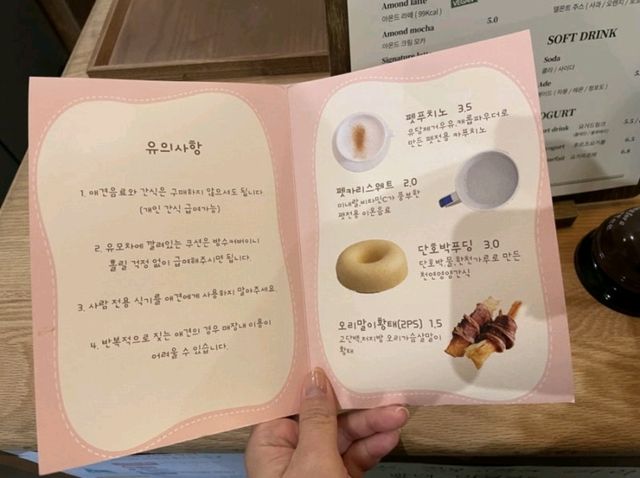 유의사항
1. 애견음료와 간식은 구매하지 않으셔도 됩니다
(개인 간식 급여가능)
2. 유모차에 깔려있는 쿠션은 방수커버이니
흘릴 걱정 없이 급여해주시면 됩니다.
3. 사람 전용 식기를 애견에게 사용하지 말아주세요.
4. 반복적으로 짖는 애견의 경우 매장내 이용이
어려울 수 있습니다.
펫푸치노 3.5
유당제거우유, 캐롭파우더로
만든 펫전용 카푸치노
펫카리스웨트 2.0
미네랄, 비타민C가 풍부한
펫전용 이온음료
단호박푸딩 3.0
단호박, 물, 한천가루로 만든
천연영양간식
오리말이황태(2PS) 1.5
고단백, 저지방 오리가슴살말이
황태
Amond latte
아몬드 라떼 (99Kcal)
VEGAN
Amond mocha 5.0
아몬드 크림 모카
Signature
SOFT DRINK
Soda
콜라 / 사이다
Ade